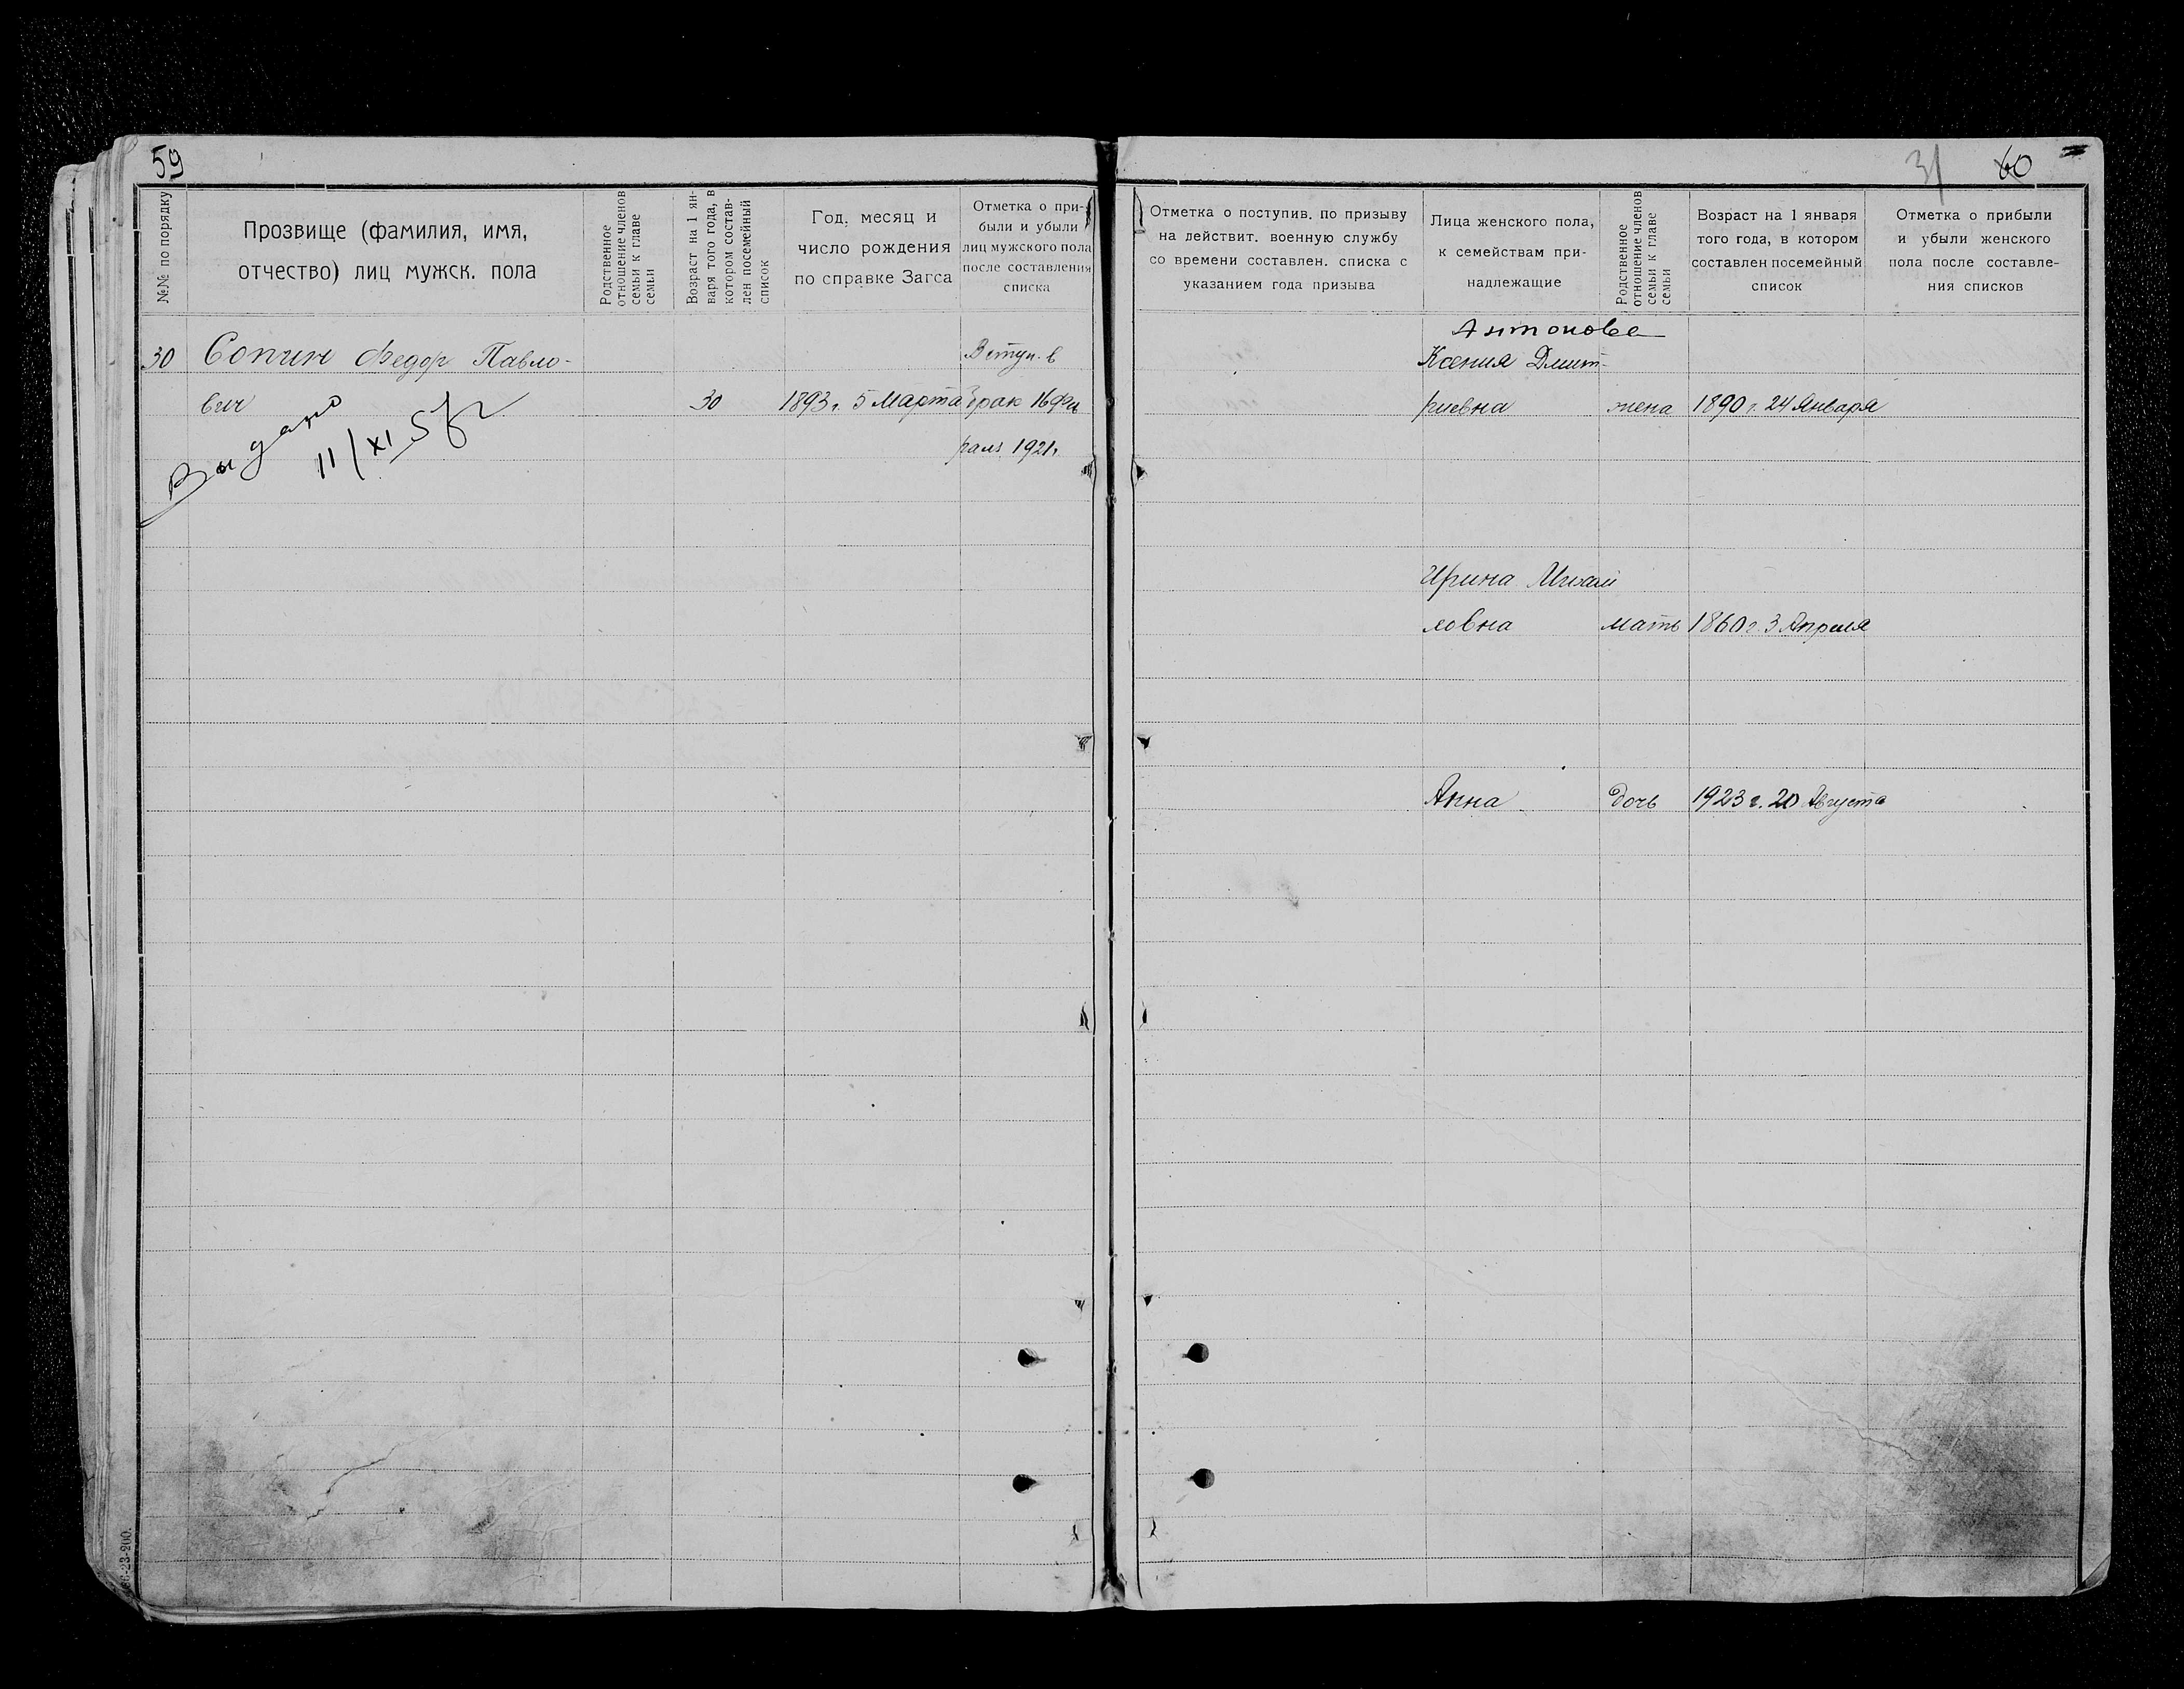 59
№№ по порядку
Прозвище (фамилия, имя,
отчество) лиц мужск. пола
Родственное
отношение членов
семьи к главе
семьи
Возраст на 1 ян-
варя того года, в
котором состав-
лен посемейный
список
Год, месяц и
число рождения
по справке Загса
Отметка о при-
были и убыли
лиц мужского пола
после составления
списка
30 Сопин Федор Павло-
вич
30
1893 г. 5 Марта
Вступ. в
брак 16 Фев
раля 1921г
Выдано
11/XI
31 60
Отметка о поступив. по призыву
на действит. военную службу
со времени составлен. списка с
указанием года призыва
Лица женского пола,
к семействам при-
надлежащие
Родственное
отношение членов
семьи к главе
семьи
Возраст на 1 января
того года, в котором
составлен посемейный
список
Отметка о прибыли
и убыли женского
пола после составле-
ния списков
Антонова
Ксения Дмит-
риевна жена 1890 г. 24 Января
Ирина Михай
ловна мать 1860 г. 3 Апреля
Анна дочь 1923 г. 20 Августа